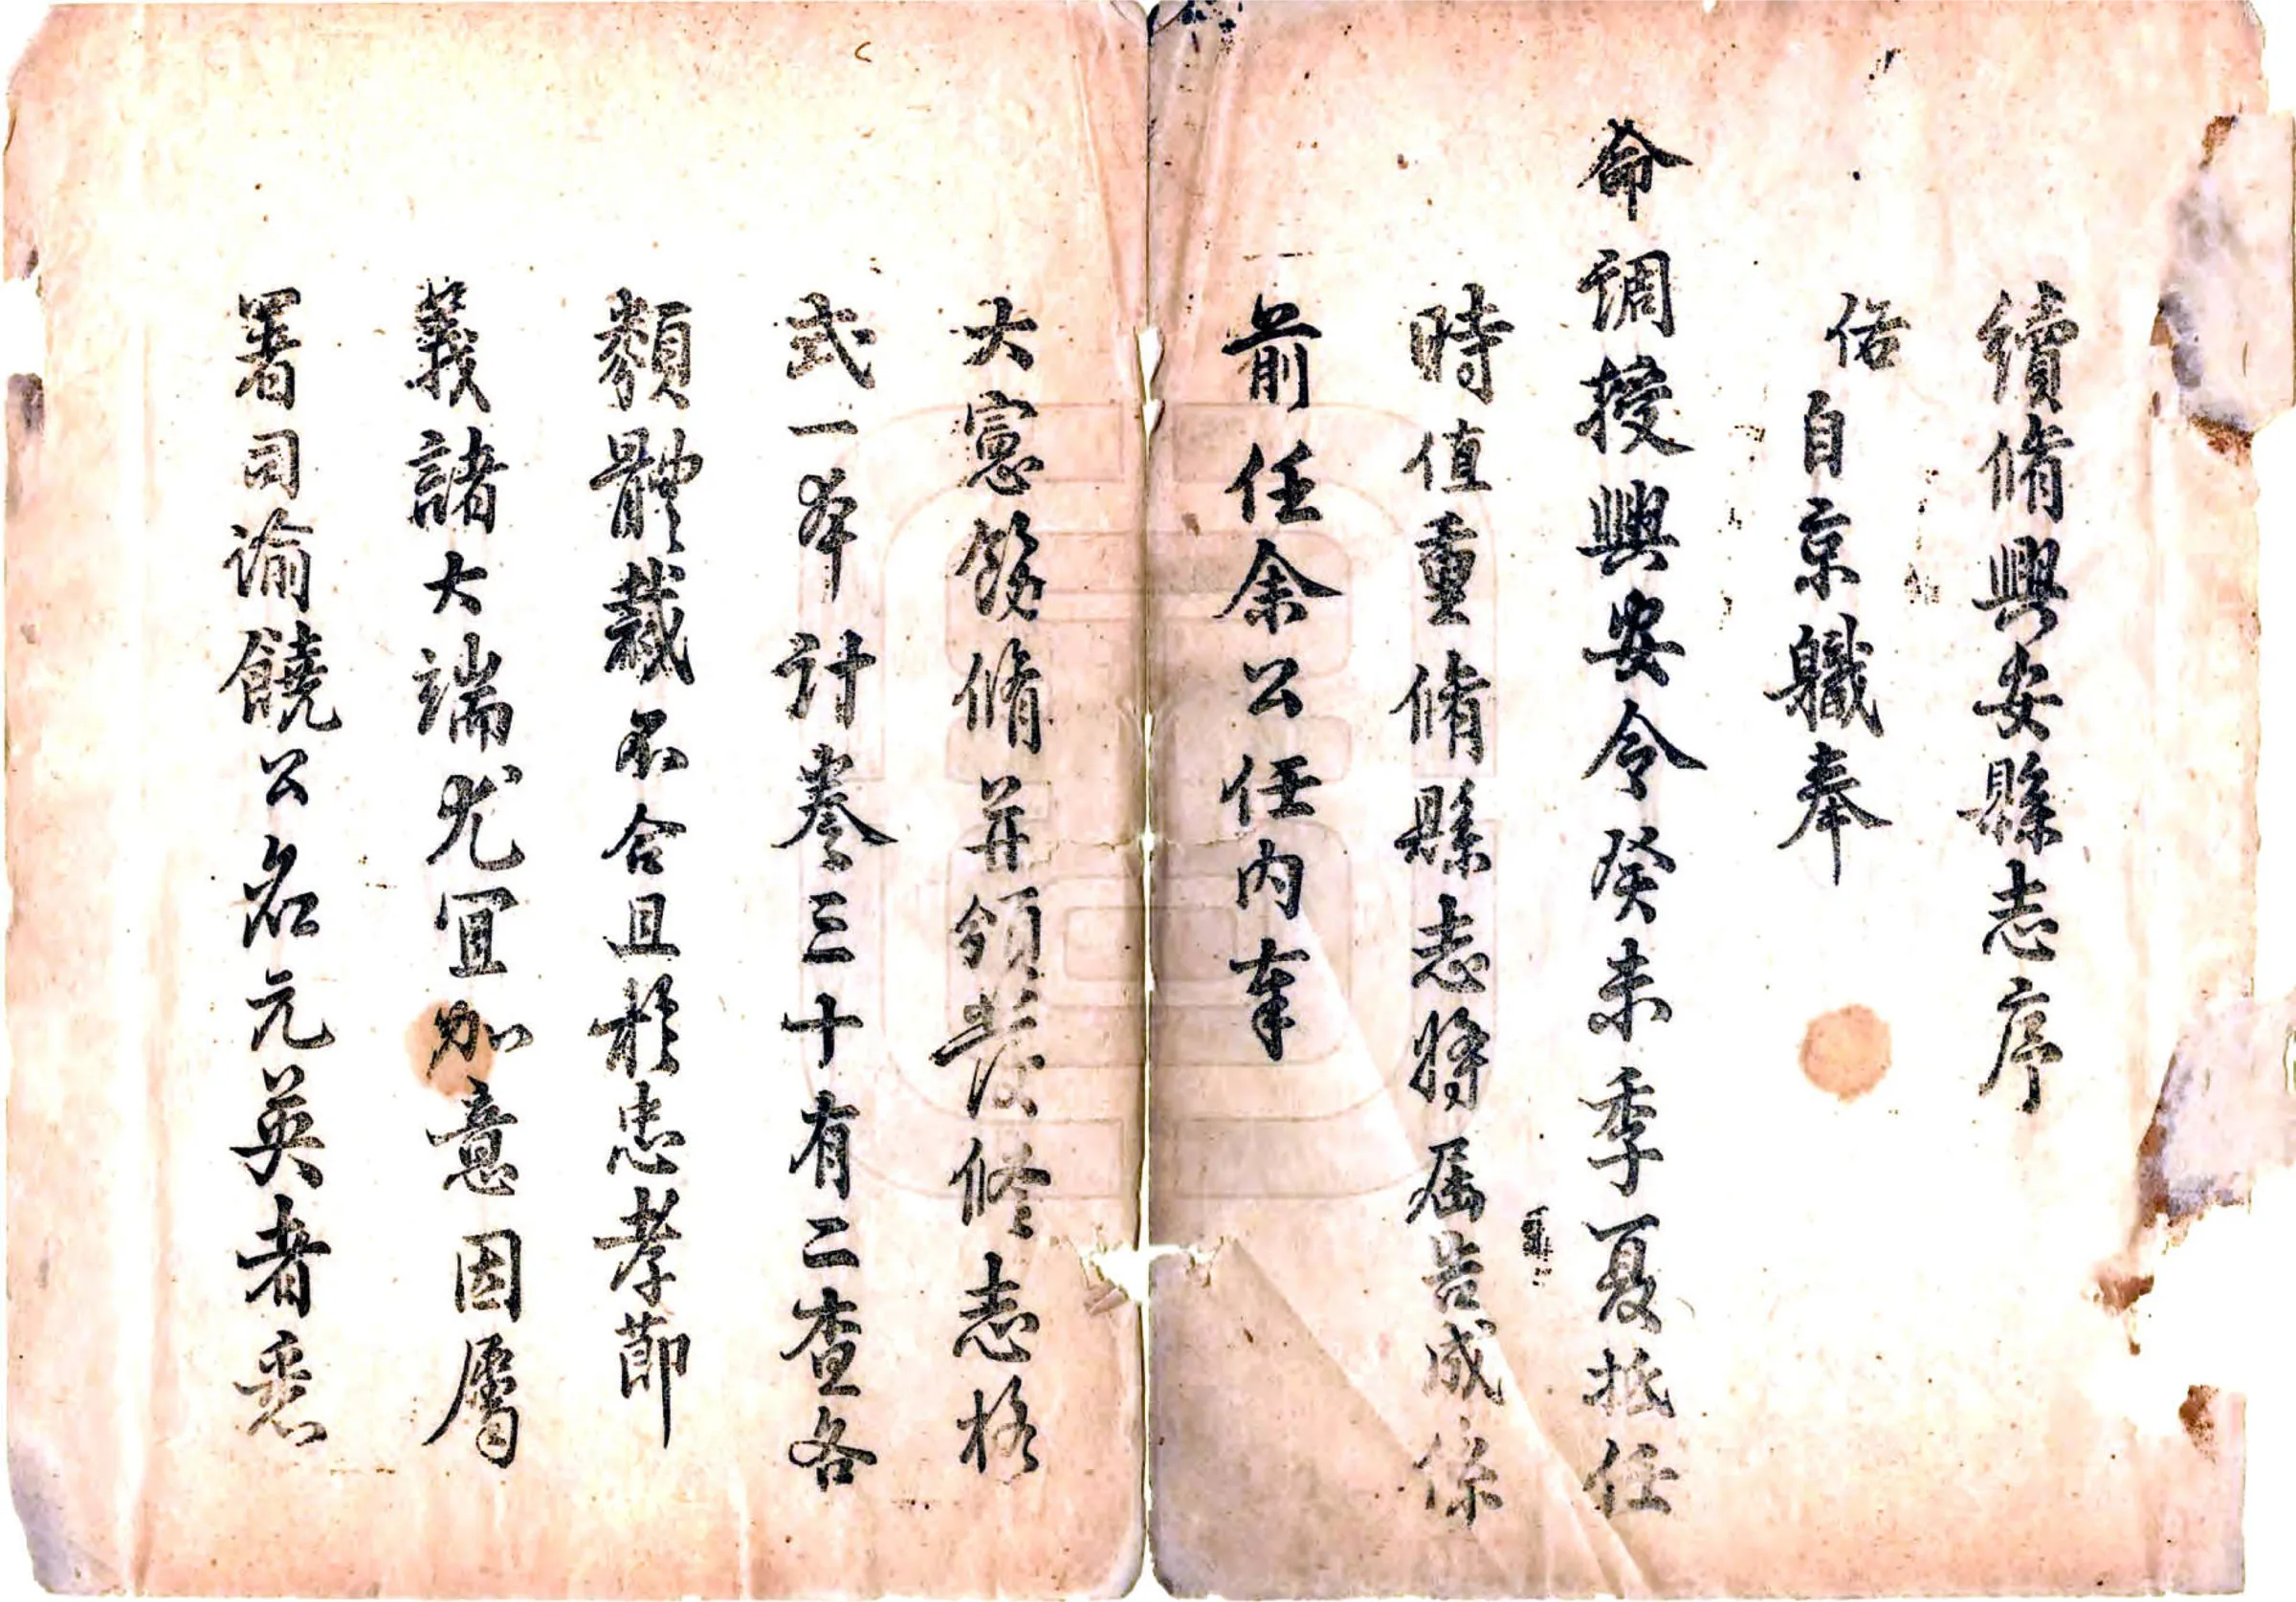 續脩興安縣志序
偌自京職奉
命調授興安令癸未季夏抵任
時值重脩縣志將届告成係
前任余公任内奉
大憲飭脩并領發修志格
式一本計卷三十有二查各
類體裁不合且於忠孝節
義諸大端尤冝加意因屬
署司諭饒公名元英者悉